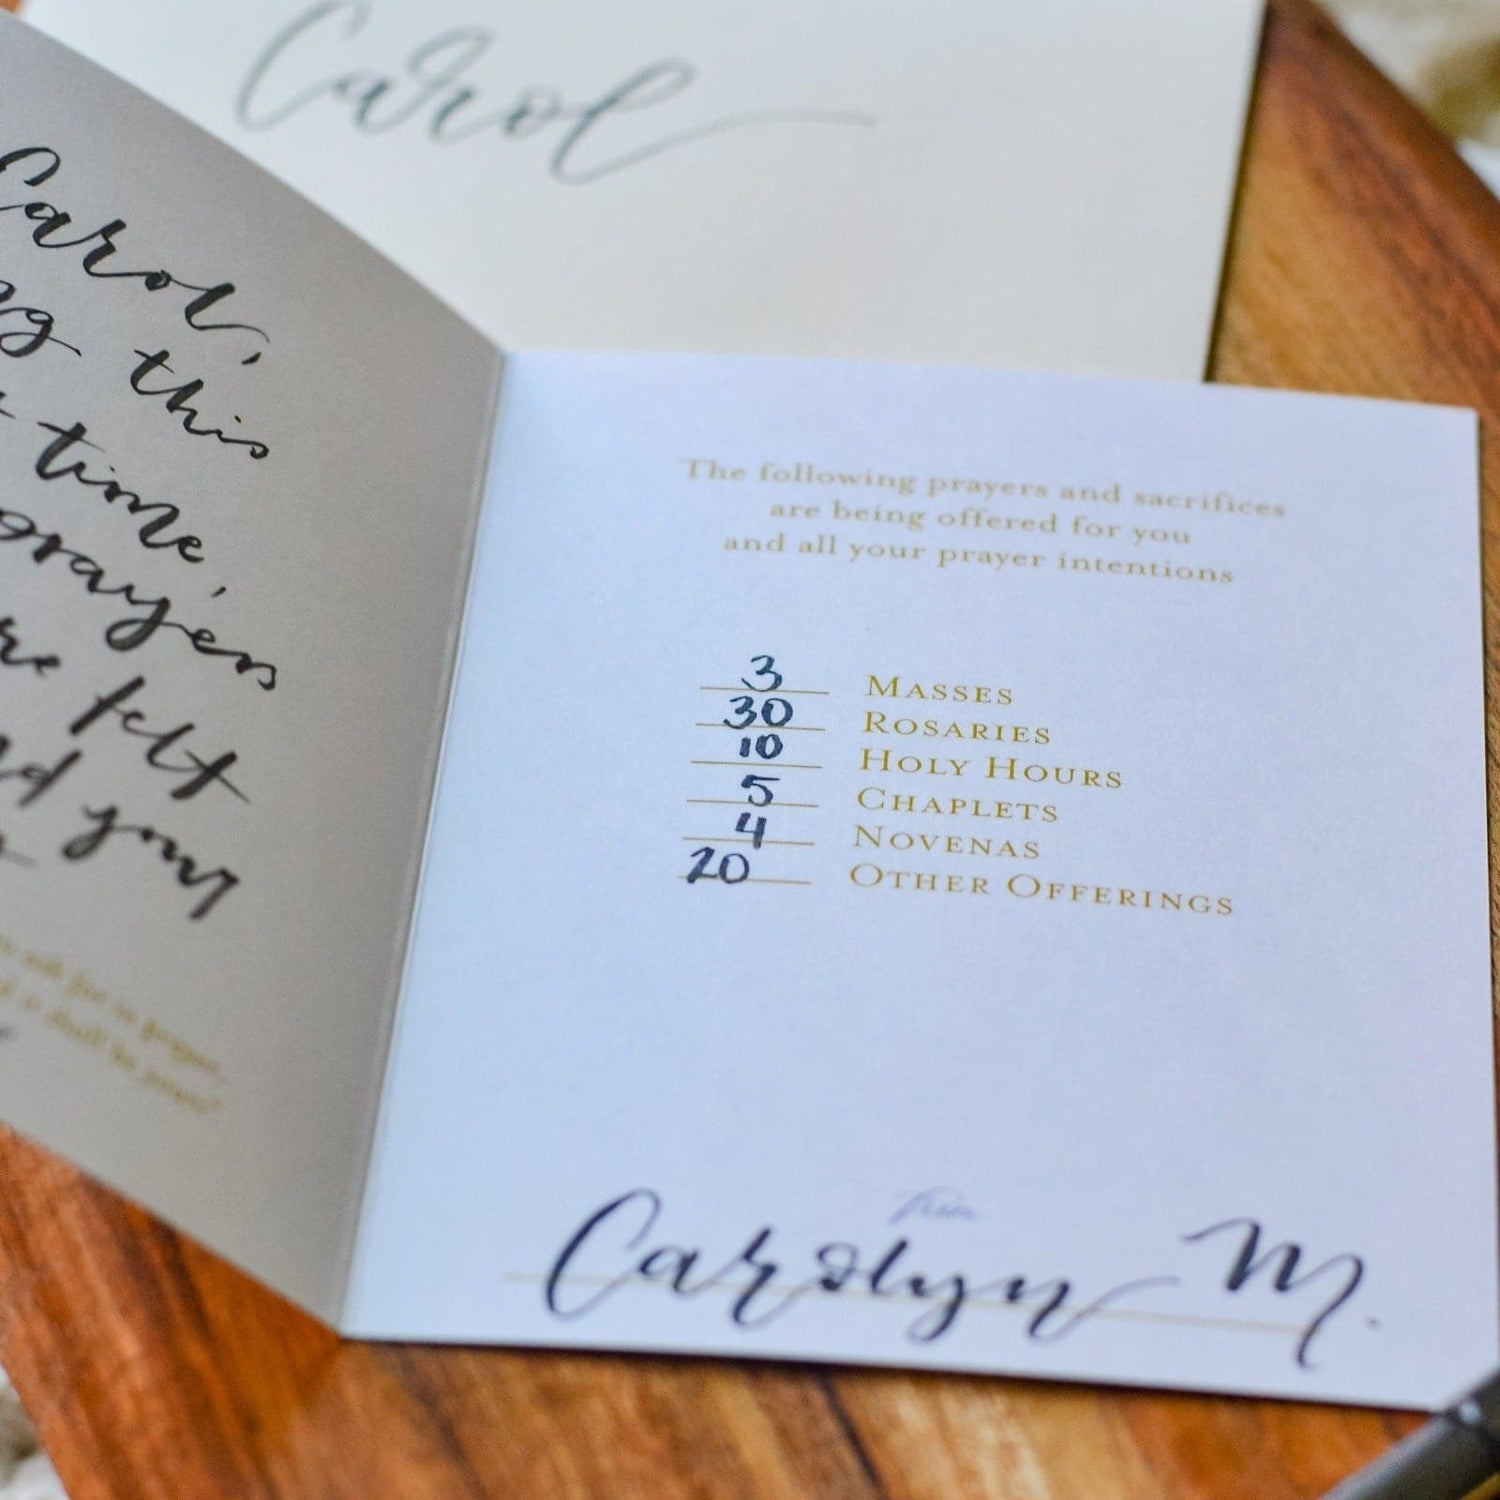 Carol
Carol,
this
time,
prayers
felt
your
The following prayers and sacrifices
are being offered for you
and all your prayer intentions
3 MASSES
30 ROSARIES
10 HOLY HOURS
5 CHAPLETS
4 NOVENAS
20 OTHER OFFERINGS
from
Carolyn M.